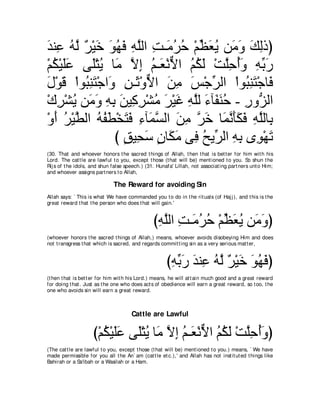 ذَلِكَ وَمَن يُعَظِّمْ حُرُمَـتِ اللَّهِ فَهُوَ خَيْرٌ لَّهُ عِندَ
رَبِّهِ وَأُحِلَّتْ لَكُمُ الاٌّنْعَـمُ إِلاَّ مَا يُتْلَى عَلَيْكُمْ
فَاجْتَنِبُواْ الرِّجْسَ مِنَ الاٌّوْثَـنِ وَاجْتَنِبُواْ قَوْلَ
الزُّورِ - حُنَفَآءَ للَّهِ غَيْرَ مُشْرِكِينَ بِهِ وَمَن يُشْرِكْ
بِاللَّهِ فَكَأَنَّمَا خَرَّ مِنَ السَّمَآءِ فَتَخْطَفُهُ الطَّيْرُ أَوْ
تَهْوِى بِهِ الرِّيحُ فِى مَكَانٍ سَحِيقٍ )
(30. That and whoever honors the sacred things of Allah, then that is better for him with his
Lord. The cattle are lawful to you, except those (that will be) mentioned to you. So shun the
Rijs of the idols, and shun false speech.) (31. Hunafa' Lillah, not associating partners unto Him;
and whoever assigns partners to Allah,
The Reward for avoiding Sin
Allah says: `This is what We have commanded you to do in the rituals (of Hajj), and this is the
great reward that the person who does that will gain.'
(وَمَن يُعَظِّمْ حُرُمَـتِ اللَّهِ)
(whoever honors the sacred things of Allah,) means, whoever avoids disobeying Him and does
not transgress that which is sacred, and regards committing sin as a very serious matter,
(فَهُوَ خَيْرٌ لَّهُ عِندَ رَبِّهِ)
(then that is better for him with his Lord.) means, he will attain much good and a great reward
for doing that. Just as the one who does acts of obedience will earn a great reward, so too, the
one who avoids sin will earn a great reward.
Cattle are Lawful
(وَأُحِلَّتْ لَكُمُ الاٌّنْعَـمُ إِلاَّ مَا يُتْلَى عَلَيْكُمْ)
(The cattle are lawful to you, except those (that will be) mentioned to you.) means, `We have
made permissible for you all the An`am (cattle etc.),' and Allah has not instituted things like
Bahirah or a Sa'ibah or a Wasilah or a Ham.